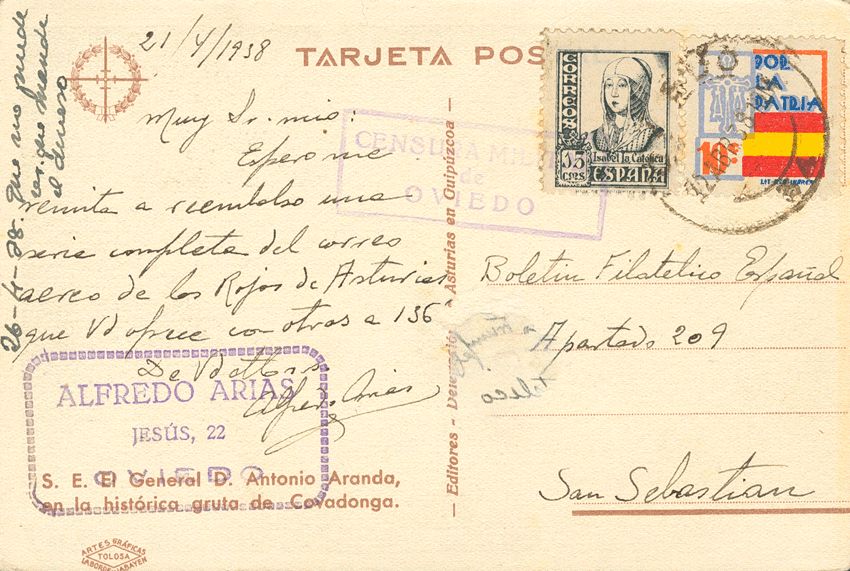 21/4/1938
TARJETA POS
Muy Sr. mio:
Espero me
remita a reembolso una
serie completa del correo
aereo de los Rojos de Asturias
que Vd ofrece con otras a 156
De Vd attos
Alfredo Arias
26-4-38. Que no puede
ser, que mande
el dinero
CENSURA MILI
de
OVIEDO
ALFREDO ARIAS
JESÚS, 22
OVIEDO
S. E. El General D. Antonio Aranda,
en la histórica gruta de Covadonga.
ARTES GRÁFICAS
TOLOSA
LABORDE Y LABAYEN
— Editores - Delegación de Asturias en Guipúzcoa —
CORREOS
15
CTS
Isabel la Católica
ESPAÑA
POR
LA
PATRIA
10
Boletin Filatelico Español
Apartado 209
San Sebastian